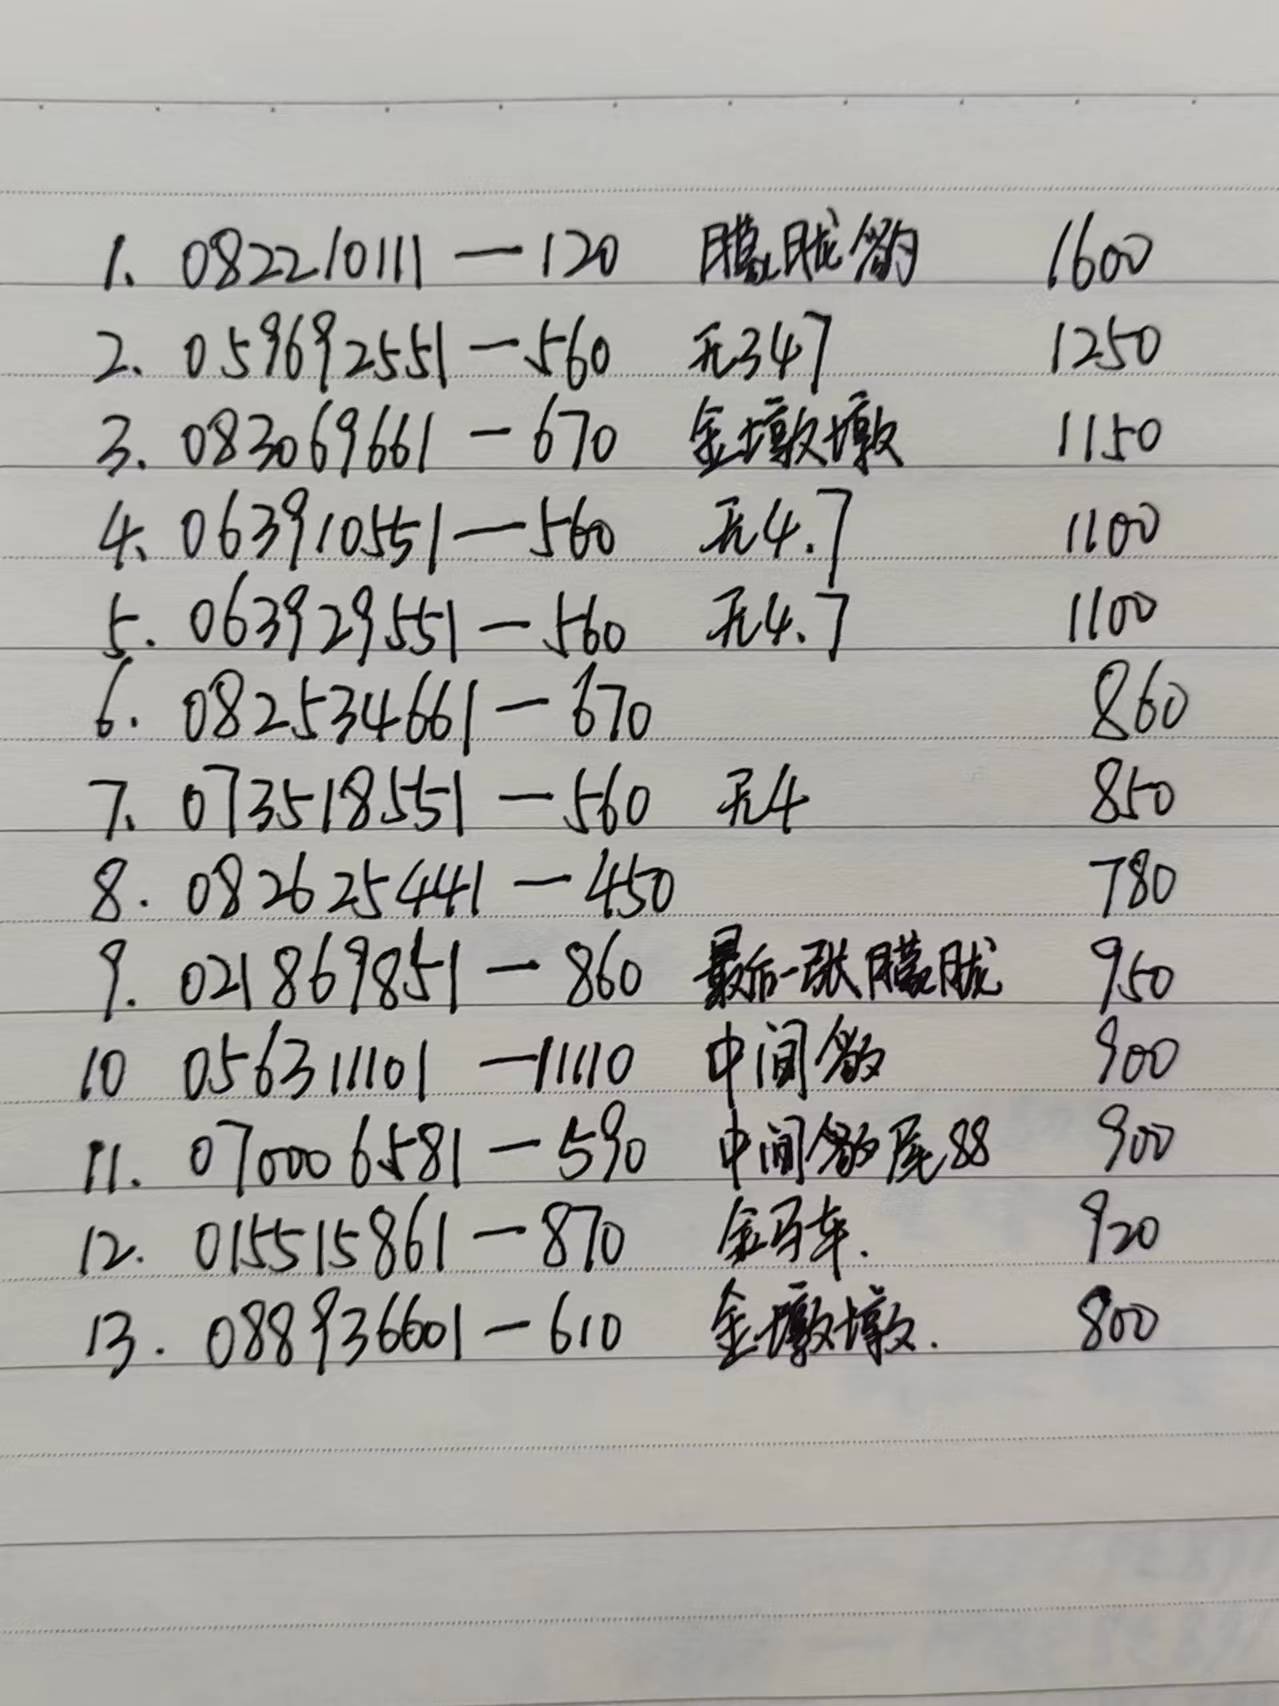 1. 082210111—120 朦胧豹 1600
2. 059692551—560 无347 1250
3. 083069661—670 金墩墩 1150
4. 063910551—560 无4.7 1100
5. 063929551—560 无4.7 1100
6. 082534661—670 860
7. 073518551—560 无4 850
8. 082625441—450 780
9. 021869851—860 最后一张朦胧 950
10 056311101—11110 中间 900
11. 070006581—590 中间 尾88 900
12. 015515861—870 金马车. 920
13. 088936601—610 金墩墩. 800